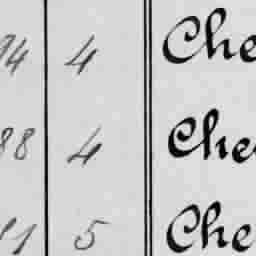 94 4 Che
88 4 Che
5 Che